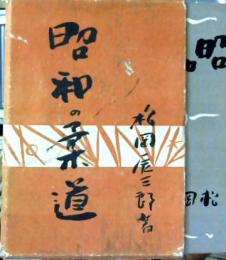 昭和の柔道
松岡辰三郎著
昭
松岡